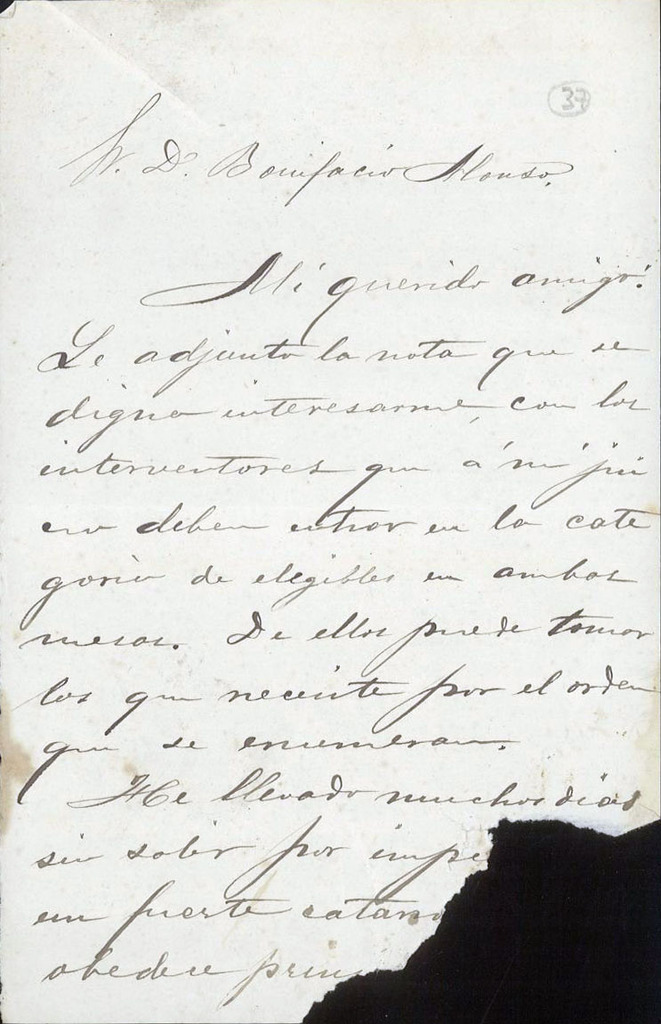 37
Sr. Dn. Bonifacio Alonso.
Mi querido amigo:
Le adjunto la nota que se
digna interesarme, con los
interventores que á mi jui
cio deben entrar en la cate
goria de elegibles en ambas
mesas. De ellos puede tomar
los que necesite por el orden
que se enumeran.
He llevado muchos dias
sin salir por impe
un fuerte catarr
obedece prin